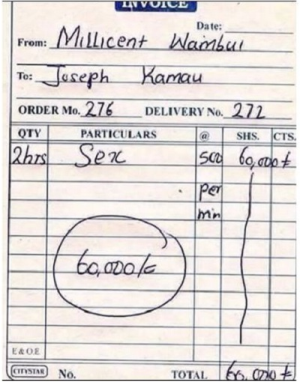 INVOICE
Date:
From: Millicent Wambui
To: Joseph Kamau
ORDER No. 276 DELIVERY No. 272
QTY PARTICULARS @ SHS. CTS.
2hrs Sex 500 60,000 ⁄=
per
min
60,000/=
E&OE
CITYSTAR No. TOTAL